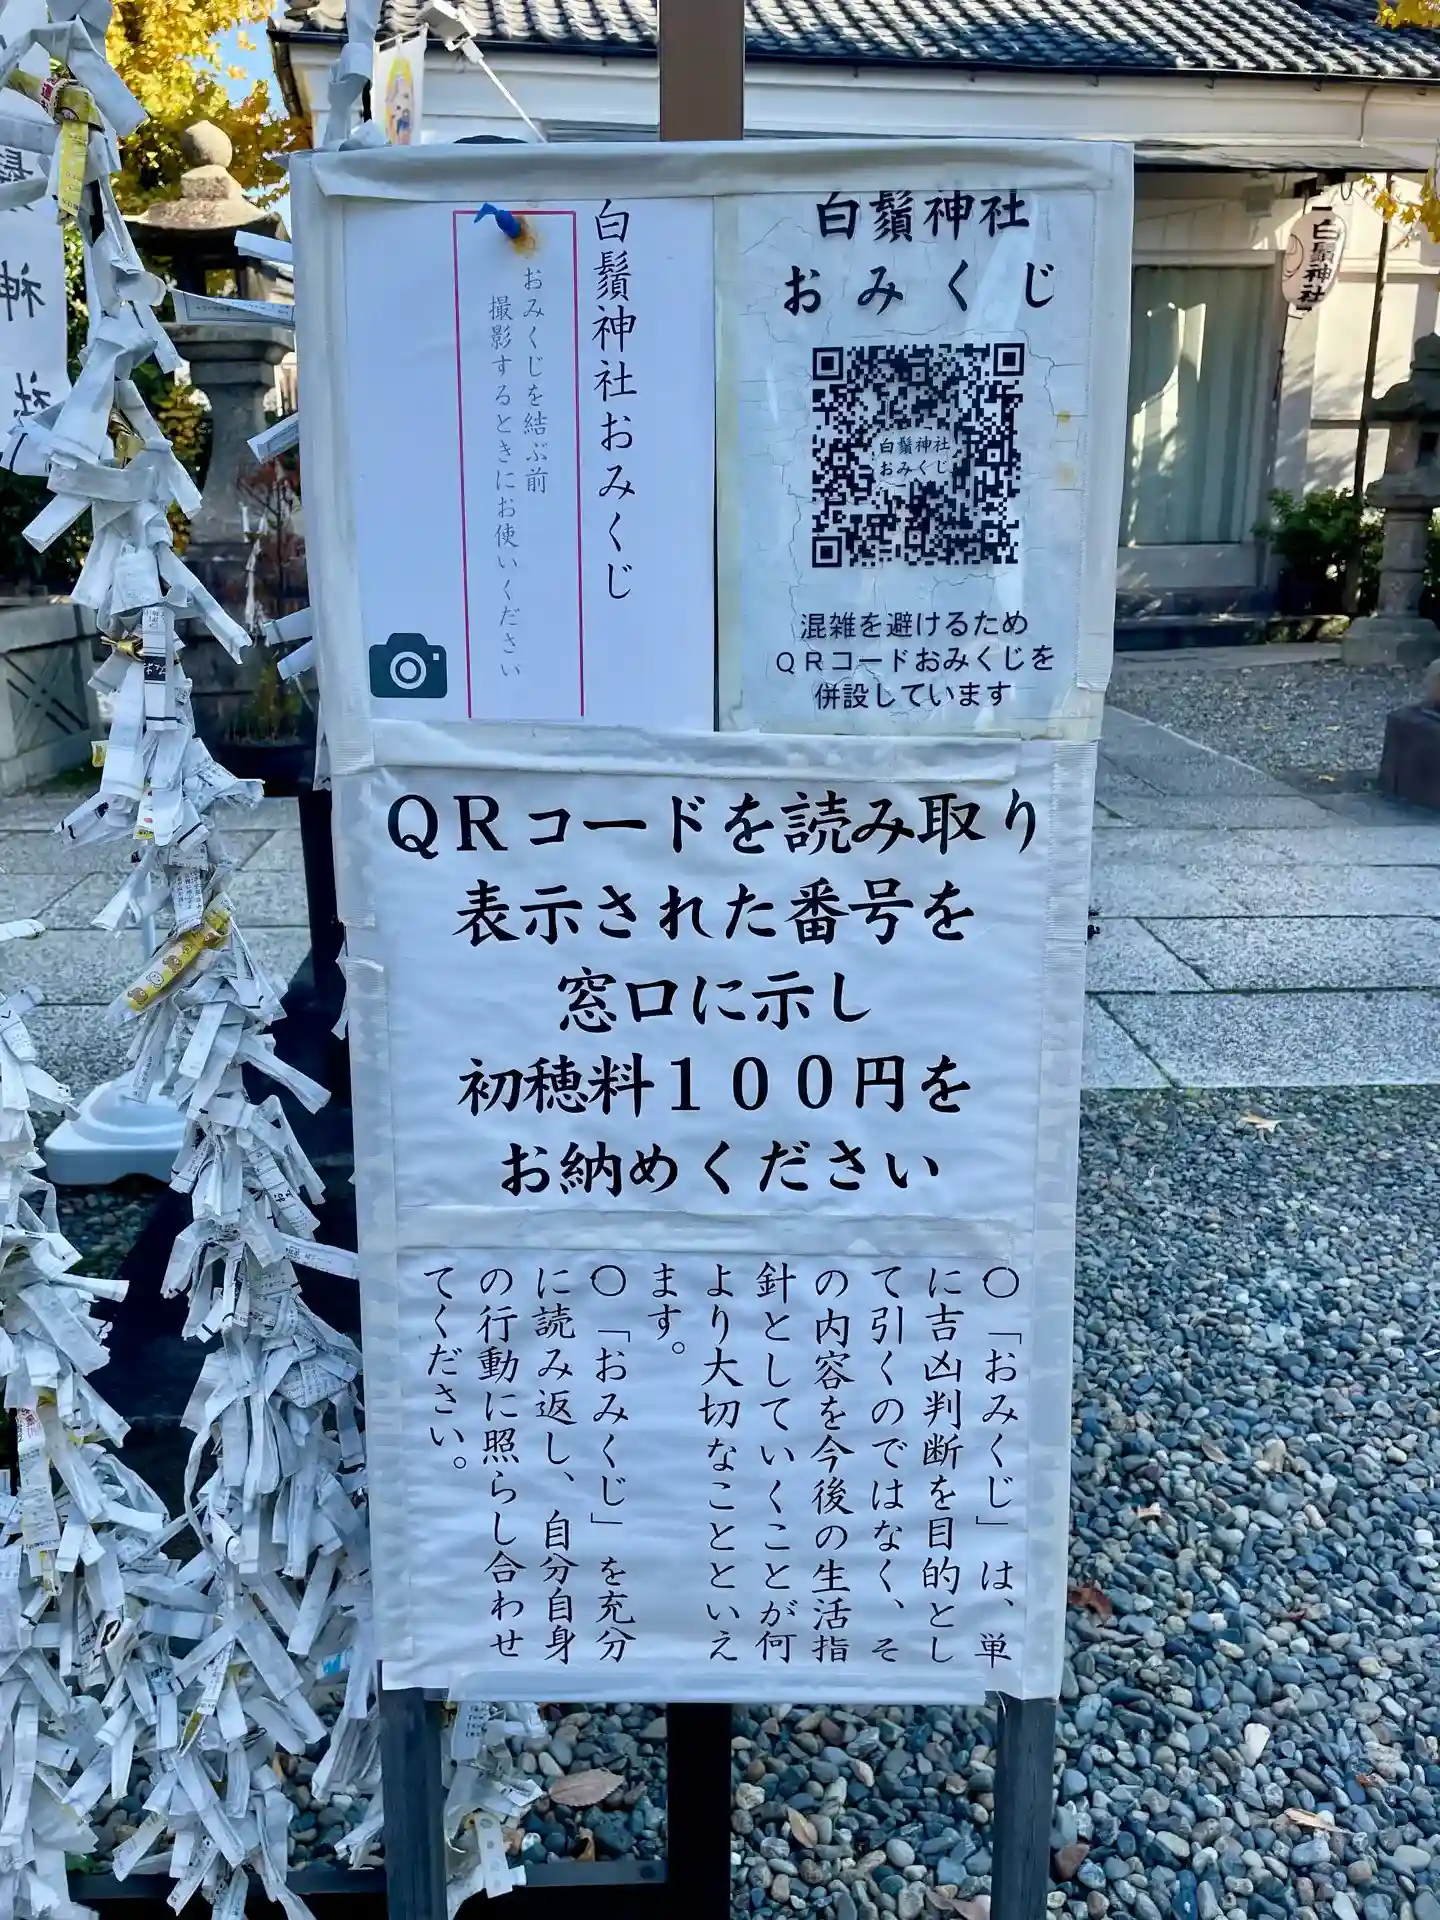 白鬚神社おみくじ
おみくじを結ぶ前
撮影するときにお使いください
白鬚神社
おみくじ
白鬚神社
おみくじ
混雑を避けるため
ＱＲコードおみくじを
併設しています
ＱＲコードを読み取り
表示された番号を
窓口に示し
初穂料１００円を
お納めください
〇「おみくじ」は、単
に吉凶判断を目的とし
て引くのではなく、そ
の内容を今後の生活指
針としていくことが何
より大切なことといえ
ます。
〇「おみくじ」を充分
に読み返し、自分自身
の行動に照らし合わせ
てください。
白鬚神社
神社